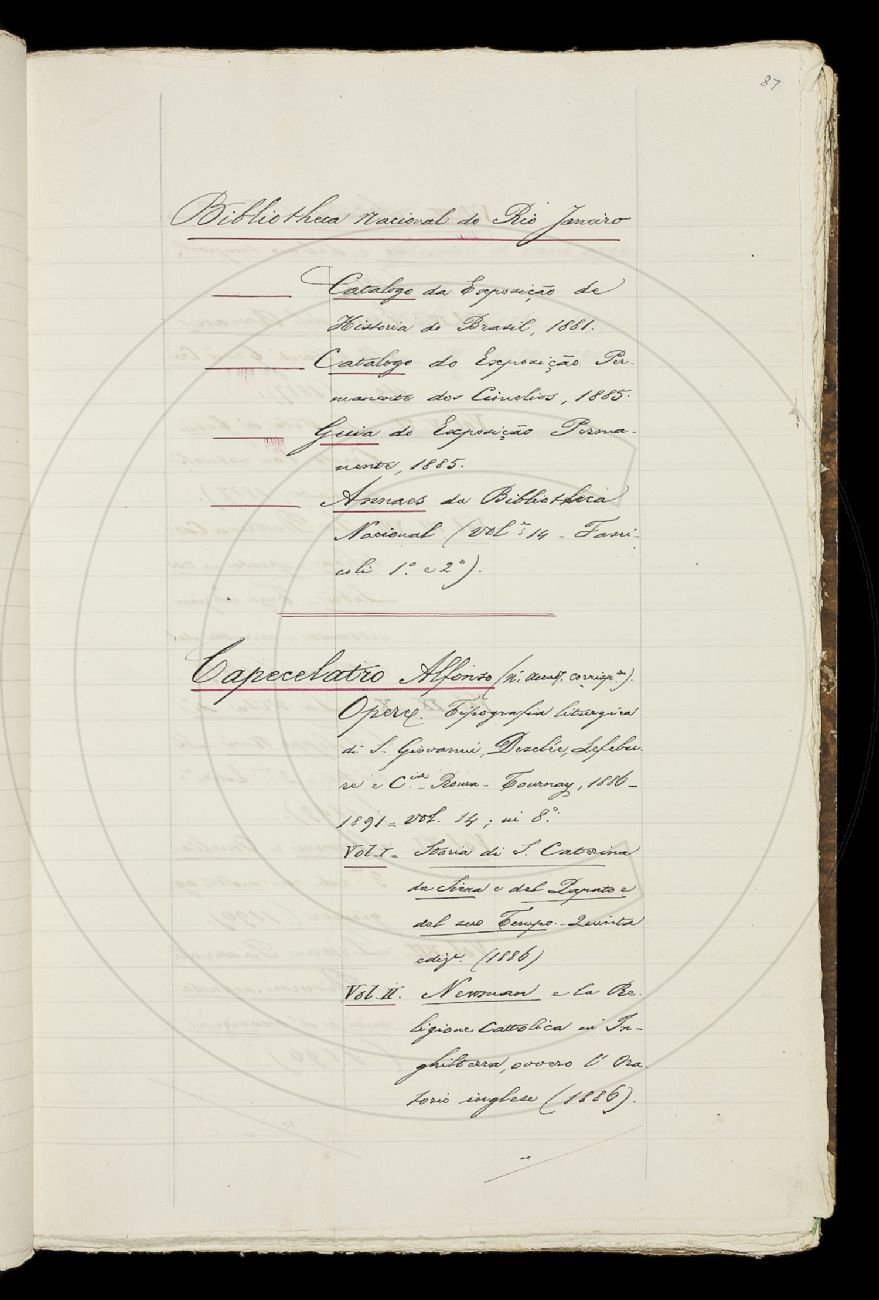 87
Bibliotheca Nacional do Rio Janeiro
Catalogo da Exposição de
Historia do Brasil, 1881.
Catalogo do Exposição Per-
manente dos Cimelios, 1885.
Guia do Exposição Perma-
nente, 1885.
Annaes da Bibliotheca
Nacional (vol. 14 - Fasci-
coli 1.º e 2.º).
Capecelatro Alfonso
Opere. Tipografia liturgica
di S. Giovanni, Desclée, Lefebv-
re e C.ie - Roma - Tournay, 1886 -
1891 - vol. 14; in 8.º
Vol. I - Storia di S. Caterina
da Siena e del Papato e
del suo Tempo - Quinta
ediz.e (1886)
Vol. II. Newman e la Re-
ligione Cattolica in In-
ghilterra, ovvero l'Ora-
torio inglese (1886).